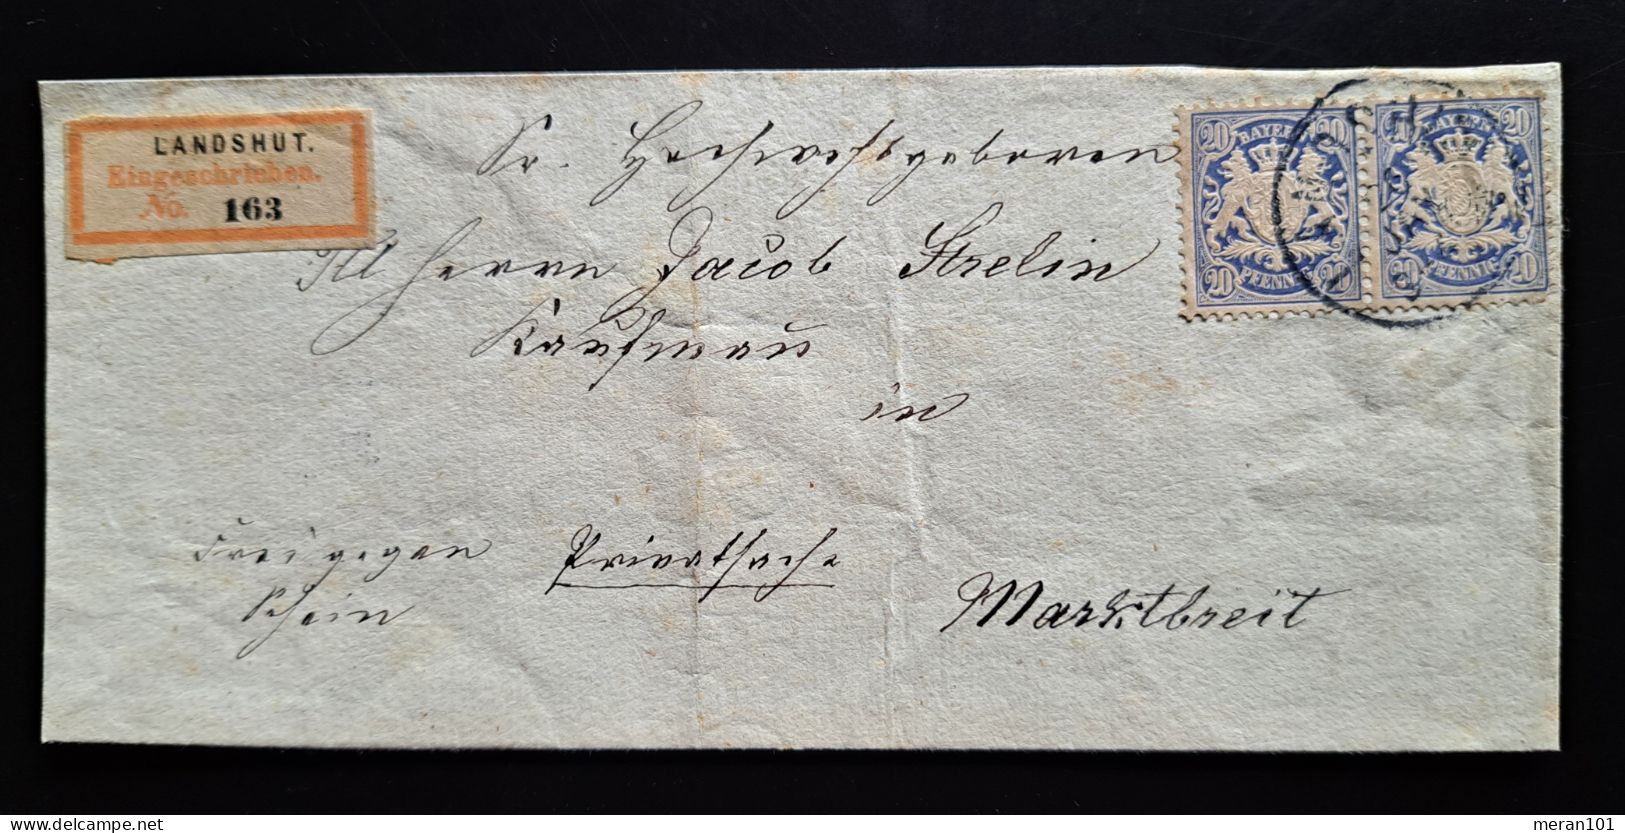 LANDSHUT.
Eingeschrieben.
No. 163
20 BAYERN 20
20 PFENNIG 20
20 BAYERN 20
20 PFENNIG 20
Sr. Hochwohlgeboren
Herrn Jacob Strelin
Kaufmann
in
Marktbreit
Frei gegen
Schein
Privatsache
delcampe.net
meran101